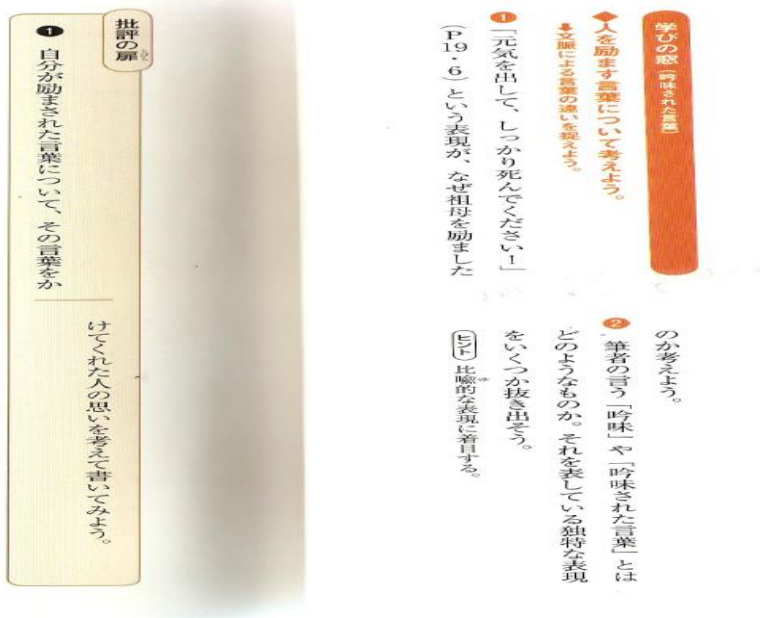 学びの窓(吟味された言葉)
◆人を励ます言葉について考えよう。
➡文脈による言葉の違いを捉えよう。
❶「元気を出して、しっかり死んでください！」
(P19・6)という表現が、なぜ祖母を励ました
のか考えよう。
❷筆者の言う「吟味」や「吟味された言葉」とは
どのようなものか。それを表している独特な表現
をいくつか抜き出そう。
ヒント 比喩的な表現に着目する。
批評の扉
❶自分が励まされた言葉について、その言葉をか
けてくれた人の思いを考えて書いてみよう。